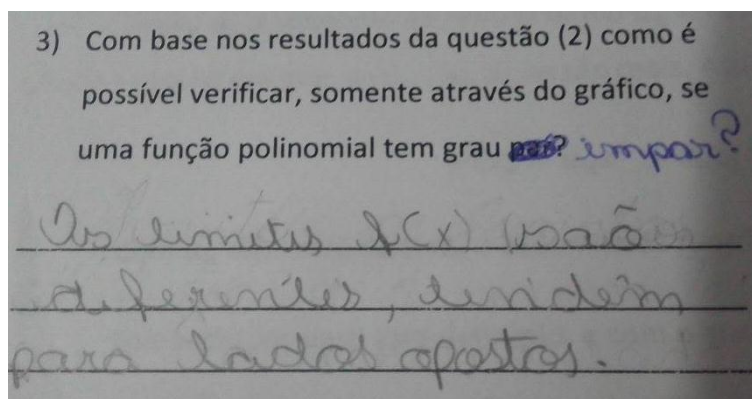 3) Com base nos resultados da questão (2) como é
possível verificar, somente através do gráfico, se
uma função polinomial tem grau par? impar?
Os limites f(x) são
diferentes, tendem
para lados opostos.